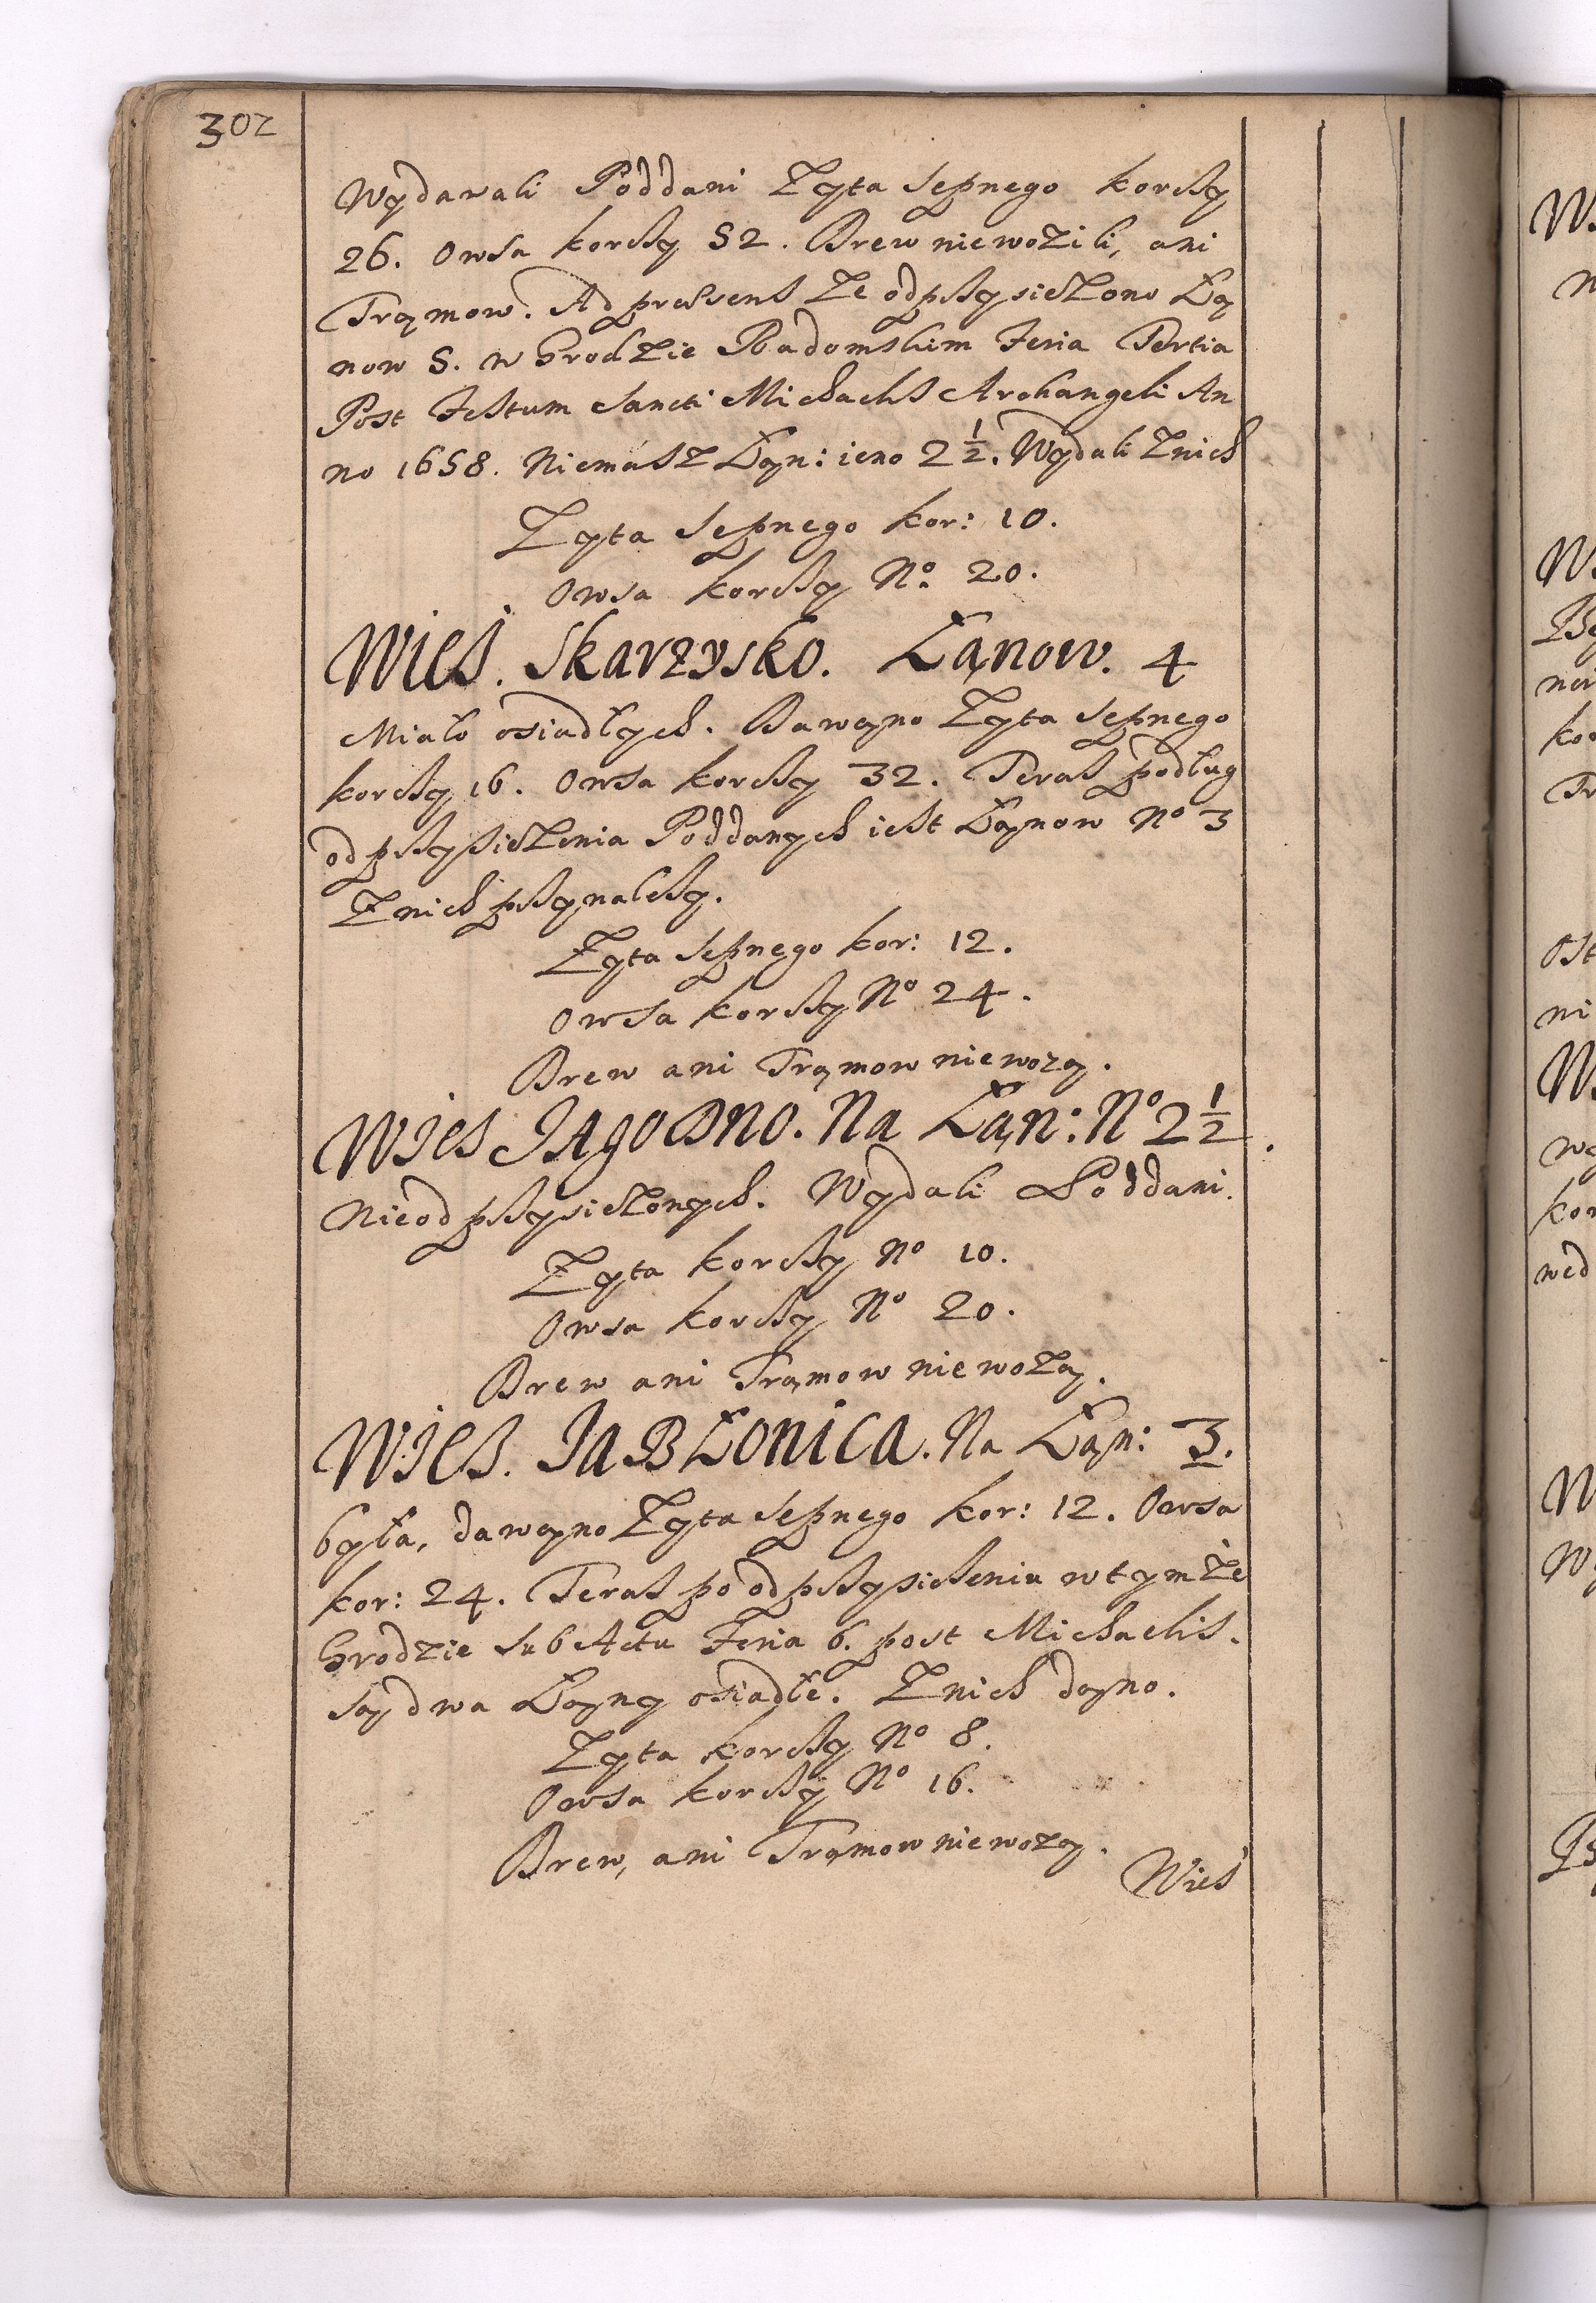 302
Wydawali Poddani Zyta Sepnego korcy
26. Owsa korcy 52. Drew niewozili, ani
Trąmow. Ad praesens ze odprzysiężono Łą
now 5. w Grodzie Radomskim Feria Tertia
Post Festum Sancti Michaelis Archangeli An
no 1658. Niemasz Łąn: ieno 2 1/2. Wydali Znich
Zyta Sepnego kor: 10.
Owsa korcy No. 20.
Wies. Skarzysko. Łąnow. 4
Miało osiadłych. Dawąno Zyta Sepnego
korcy 16. Owsa korcy 32. Teras podług
odprzysięzenia Poddanych iest Łąnow No 3
Znich przynalezy.
Zyta Sepnego kor: 12.
Owsa korcy No 24.
Drew ani Trąmow niewozą.
Wies Jagodno. Na Łąn: No 2 1/2.
Nieodprzysiężonych. Wydali Poddani.
Zyta korcy No 10.
Owsa korcy No 20.
Drew ani Trąmow niewozą.
Wies. Jabłonica. Na Łąn: 3.
była, dawąno Zyta Sepnego kor: 12. Owsa
kor: 24. Teras po odprzysiężeniu wtymże
Grodzie sub Actu Feria 6. post Michaelis.
Są dwa Łąny osiadłe. Znich dąno.
Zyta korcy No 8.
Owsa korcy No 16.
Drew, ani Trąmow niewozą.
Wieś